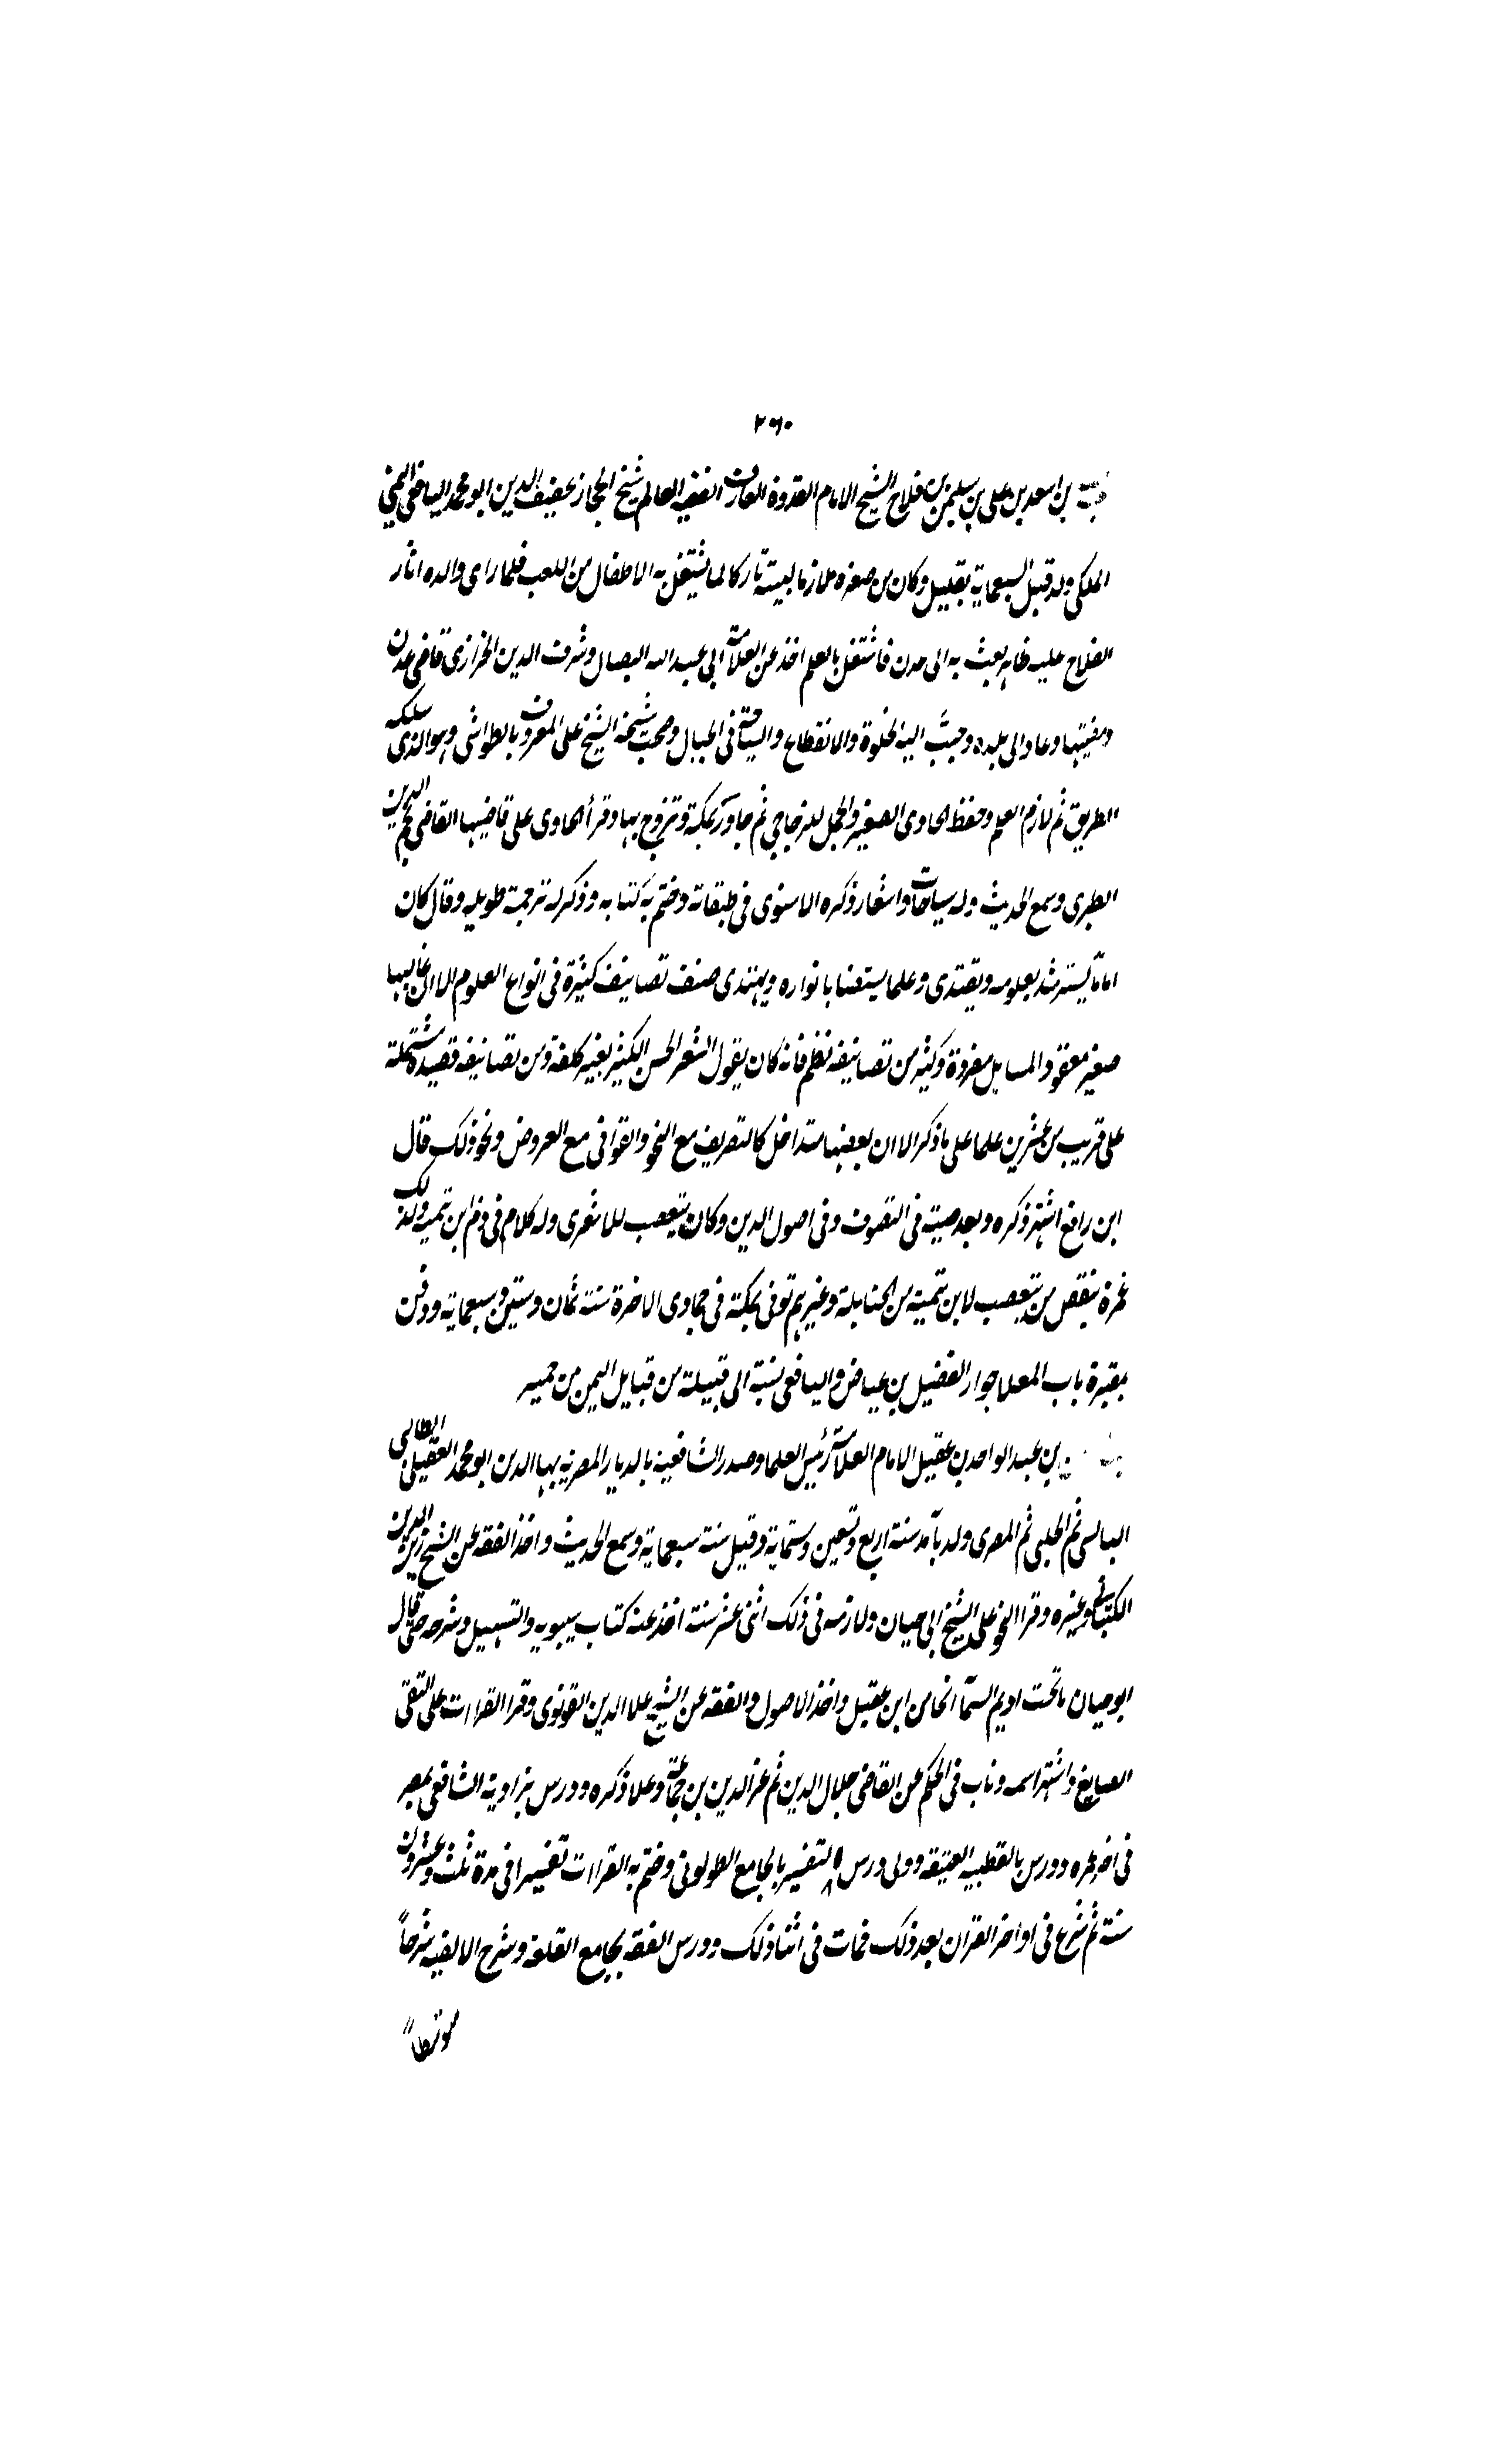 ٢٦٠
بن اسعد بن على بن سليمن بن فلاح الشيخ الامام القدوة العارف الفقيه العالم شيخ الحجاز عفيف الدين ابو محمد اليافعى اليمنى
المكى ولد قبل السبعماية بقليل وكان من صغره ملازما لبيته تاركا لما يشتغل به الاطفال من اللعب فلما راى والده اثار
الفلاح عليه ظاهر بعث به الى عدن فاشتغل بالعلم اخذ عن العلامة ابى عبد الله البصال وشرف الدين الحرازى قاضى عدن
ومفتيها وعاد الى بلده وحبب اليه الخلوة والانقطاع والسياحة فى الجبال وصحب شيخه الشيخ على المعروف بالطواشى وهو الذى سلكه
الطريق ثم لازم العلم وحفظ الحاوى الصغير والجمل للزجاجى ثم جاور بمكة وتزوج بها وقرأ الحاوى على قاضيها القاضى نجم الدين
الطبرى وسمع الحديث وله سياحات واسفار ذكره الاسنوى فى طبقاته وختم به كتابه وذكر له ترجمة طويله وقال كان
اماما يسترشد بعلومه ويقتدى وعلما يستضا بانواره ويهتدى صنف تصانيف كثيرة فى انواع العلوم الا ان غالبها
صغير معقود لمسايل مفردة وكثير من تصانيفه نظم فانه كان يقول الشعر الحسن الكثير بغير كلفة ومن تصانيفه قصيدة مشتملة
على قريب من عشرين علما على ما ذكر الا ان بعضها متداخل كالتصريف مع النحو والقوافى مع العروض ونحو ذلك قال
ابن رافع اشتهر ذكره وبعد صيته فى التصوف وفى اصول الدين وكان يتعصب للاشعرى وله كلام فى ذم ابن تيمية ولذلك
غمزه بنقص من تعصب لابن تيمية من الحنابلة وغيرهم توفى بمكة فى جمادى الاخرة سنة ثمان وستين وسبعماية ودفن
بمقبرة باب المعلا جوار الفضيل بن عياض واليافعى نسبة الى قبيلة من قبايل اليمن من حمير
بن عبد الواحد بن عقيل الامام العلامة رئيس العلما وصدر الشافعية بالديار المصرية بها الدين ابو محمد العقيلى الطالبى
البالسى ثم الحلبى ثم المصرى ولد بآمد سنة اربع وتسعين وستماية وقيل سنة سبعماية وسمع الحديث واخذ الفقه عن الشيخ زين الدين
الكتنانى وغيره وقرا النحو على الشيخ ابى حيان ولازمه فى ذلك اثنى عشر سنة اخذ عنه كتاب سيبويه والتسهيل وشرحه حتى قال
ابو حيان ما تحت اديم السمآ انحا من ابن عقيل واخذ الاصول والفقه عن الشيخ علا الدين القونوى وقرا القراات على التقى
الصايغ واشتهر اسمه وناب فى الحكم عن القاضى جلال الدين ثم عز الدين بن جماعة وعلا ذكره ودرس بزاوية الشافعى بمصر
فى اخر عمره ودرس بالقطبيه العتيقه وولى درس التفسير بالجامع الطولونى وختم به القراات تفسيرا فى مدة ثلث وعشرون
سنة ثم شرع فى اواخر القران بعد ذلك فمات فى اثنا ذلك ودرس الفقه بجامع القلعة وشرح الالفيه شرحاً
متوسطاً